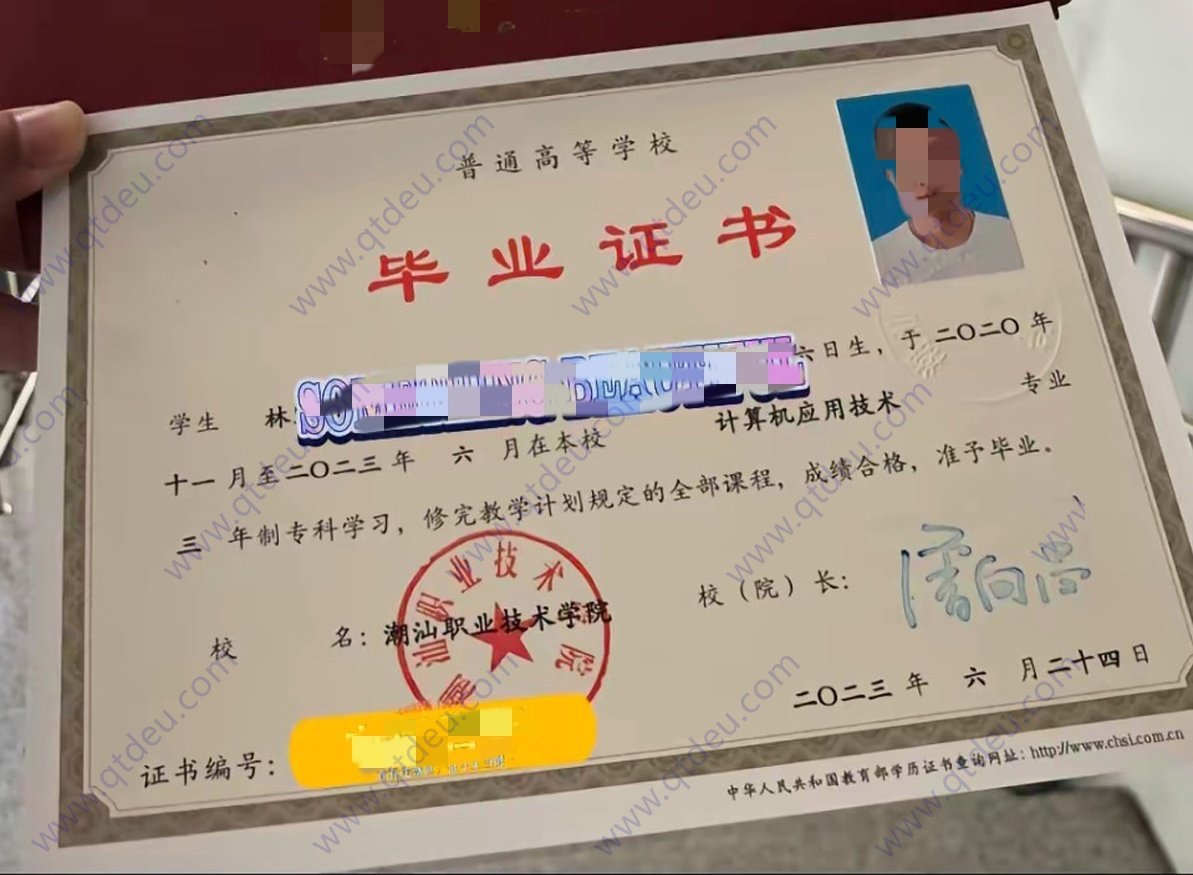 普通高等学校
毕业证书
学生 林 六日生，于二〇二〇年
十一月至二〇二三年 六 月在本校 计算机应用技术 专业
三 年制专科学习，修完教学计划规定的全部课程，成绩合格，准予毕业。
校 名：潮汕职业技术学院
校（院）长：
二〇二三年 六 月二十四日
证书编号：
中华人民共和国教育部学历证书查询网址：http://www.chsi.com.cn
www.qtdeu.com